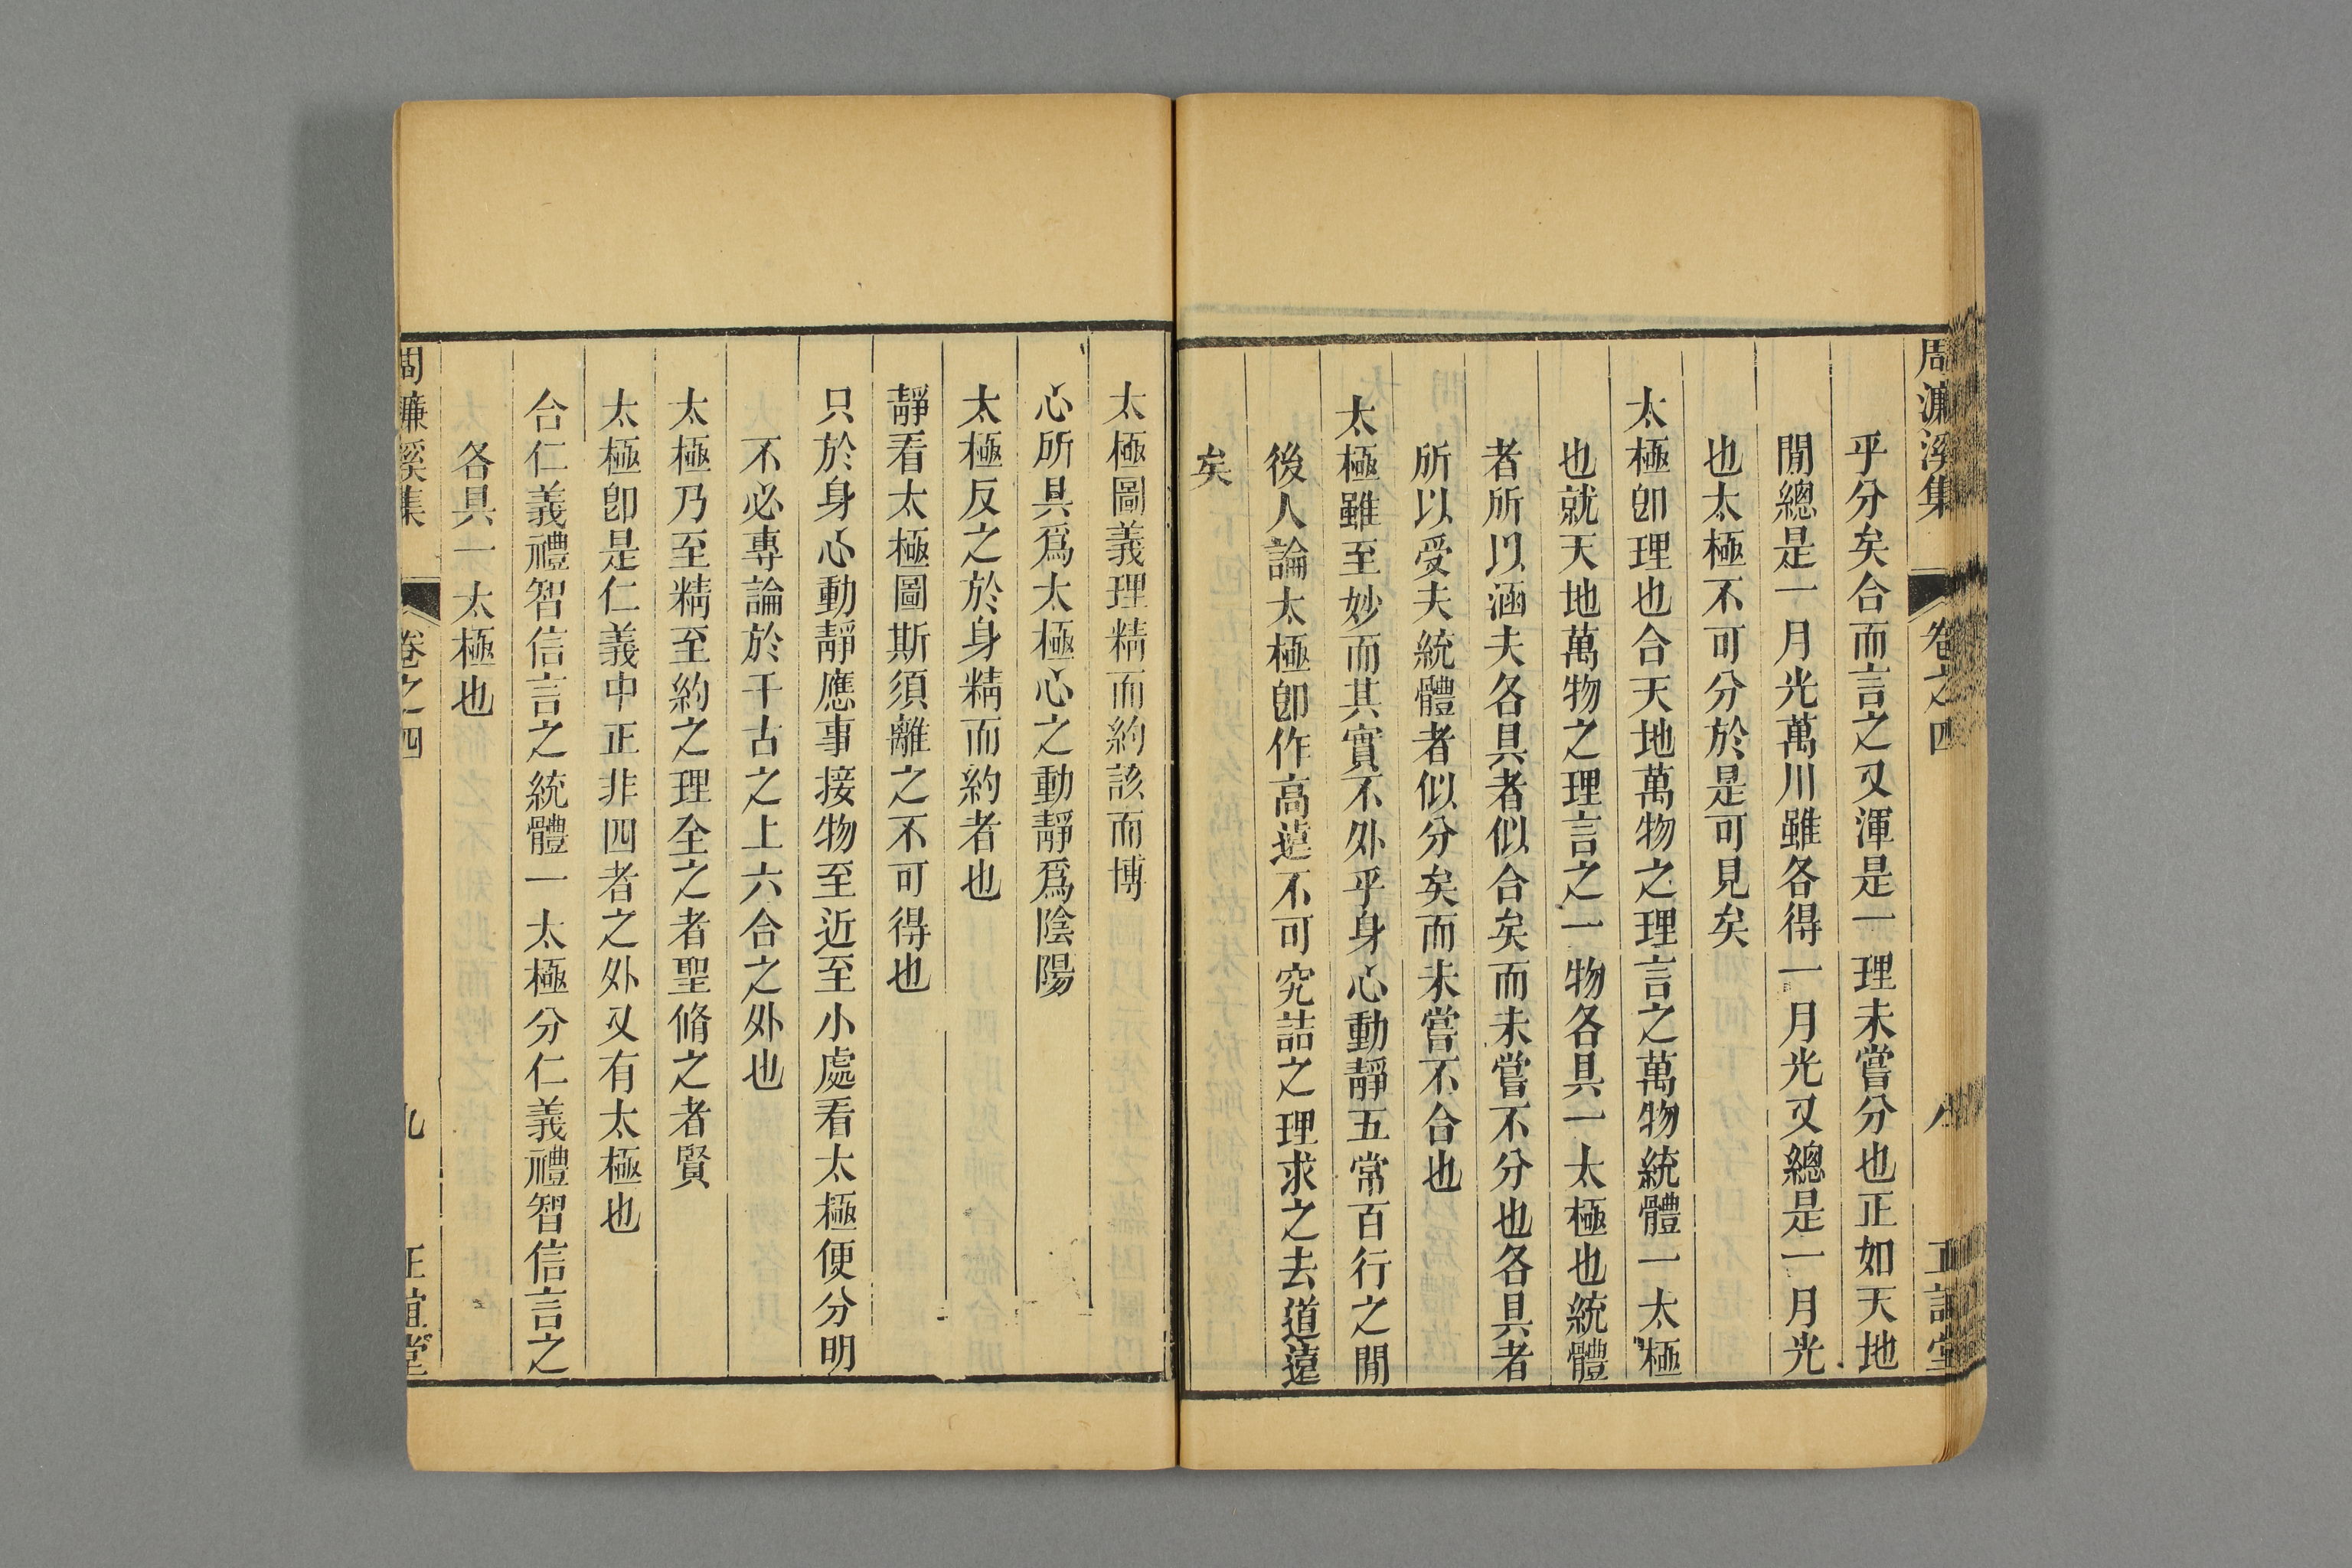 周濂溪集 卷之四 八 正誼堂
乎分矣合而言之又渾是一理未嘗分也正如天地
閒總是一月光萬川雖各得一月光又總是一月光
也太極不可分於是可見矣
太極卽理也合天地萬物之理言之萬物統體一太極
也就天地萬物之理言之一物各具一太極也統體
者所以涵夫各具者似合矣而未嘗不分也各具者
所以受夫統體者似分矣而未嘗不合也
太極雖至妙而其實不外乎身心動靜五常百行之閒
後人論太極卽作高遠不可究詰之理求之去道遠
矣
太極圖義理精而約該而博
心所具爲太極心之動靜爲陰陽
太極反之於身精而約者也
靜看太極圖斯須離之不可得也
只於身心動靜應事接物至近至小處看太極便分明
不必專論於千古之上六合之外也
太極乃至精至約之理全之者聖脩之者賢
太極卽是仁義中正非四者之外又有太極也
合仁義禮智信言之統體一太極分仁義禮智信言之
各具一太極也
周濂溪集 卷之四 九 正誼堂